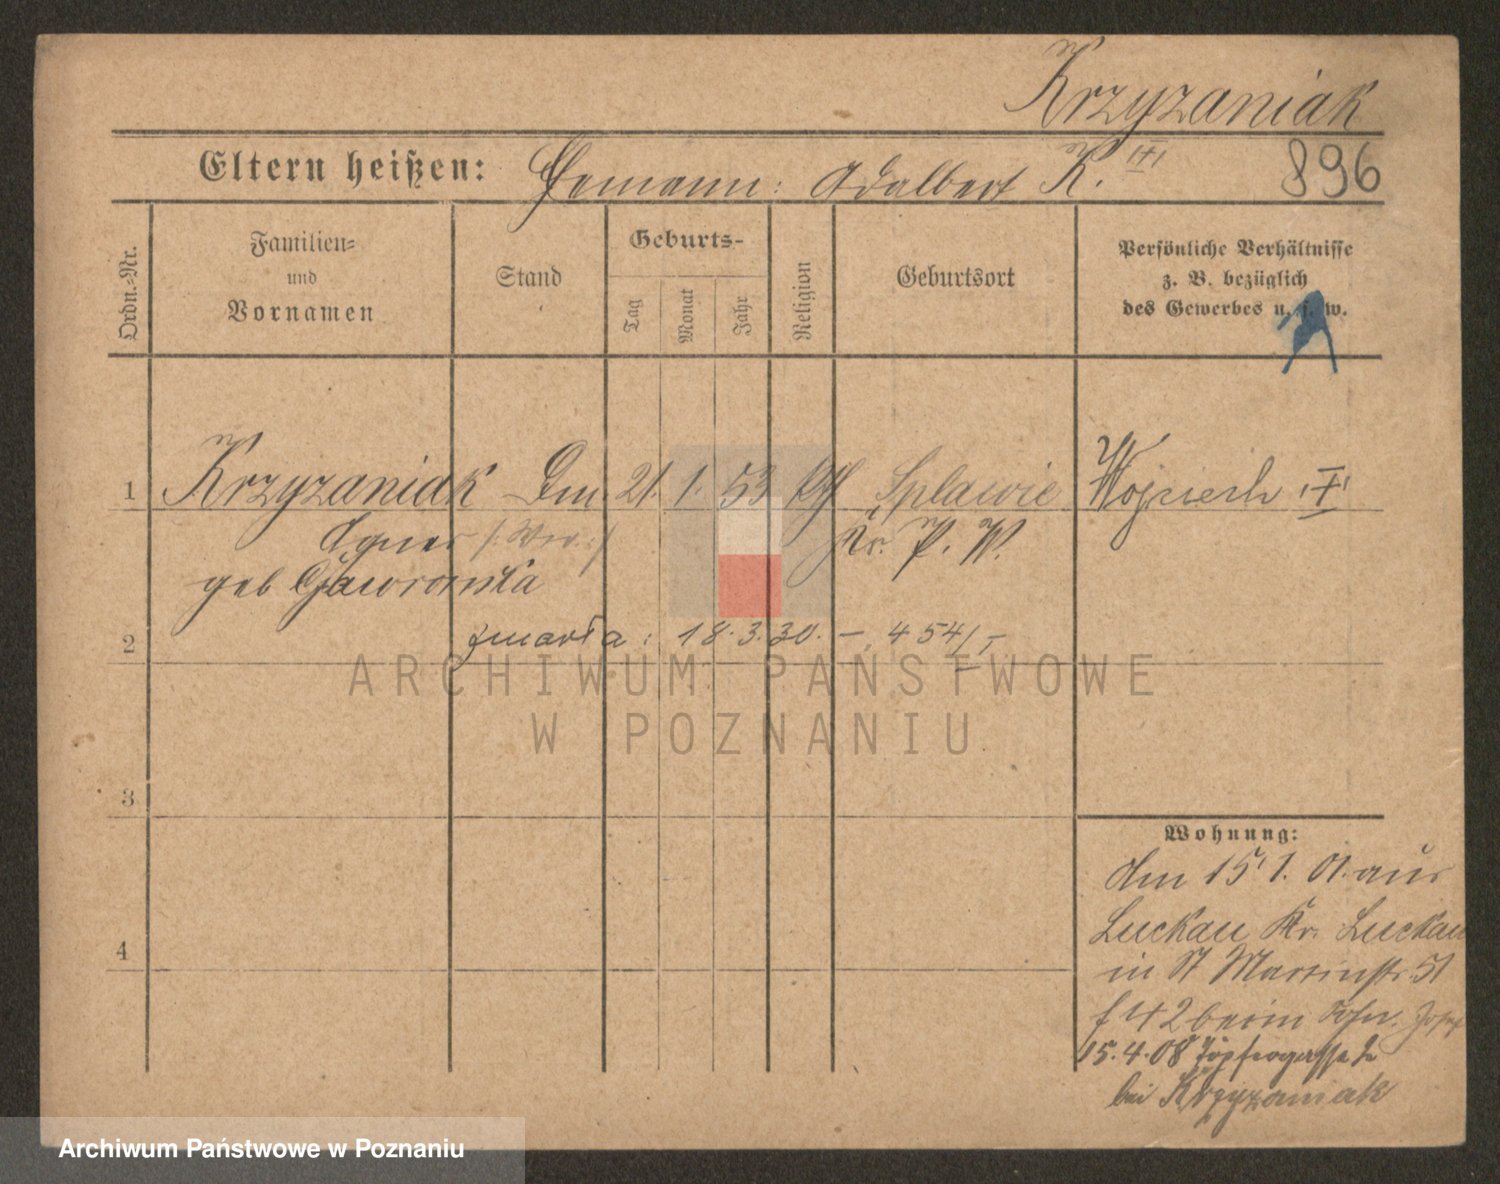 Krzyzaniak
Eltern heißen: Ehemann: Adalbert K. 896
Ordn.-Nr.
Familien-
und
Vornamen
Stand
Geburts-
Tag
Monat
Jahr
Religion
Geburtsort
Persönliche Verhältnisse
z. B. bezüglich
des Gewerbes u. s. w.
1 Krzyzaniak 21. 1. 53 Splawie Wojciech
Agnes /: Ww :/ Kr. P. W.
geb Gaworonska
2 zmarła: 18.3.30. – 454/
ARCHIWUM PAŃSTWOWE
W POZNANIU
3
Wohnung:
den 15 1. 01. aus
Luckau Kr. Luckau
4 in St Martinstr. 51
f 42 beim Sohn. Josef
15.4.08 Töpfergasse 2
bei Krzyzaniak
Archiwum Państwowe w Poznaniu